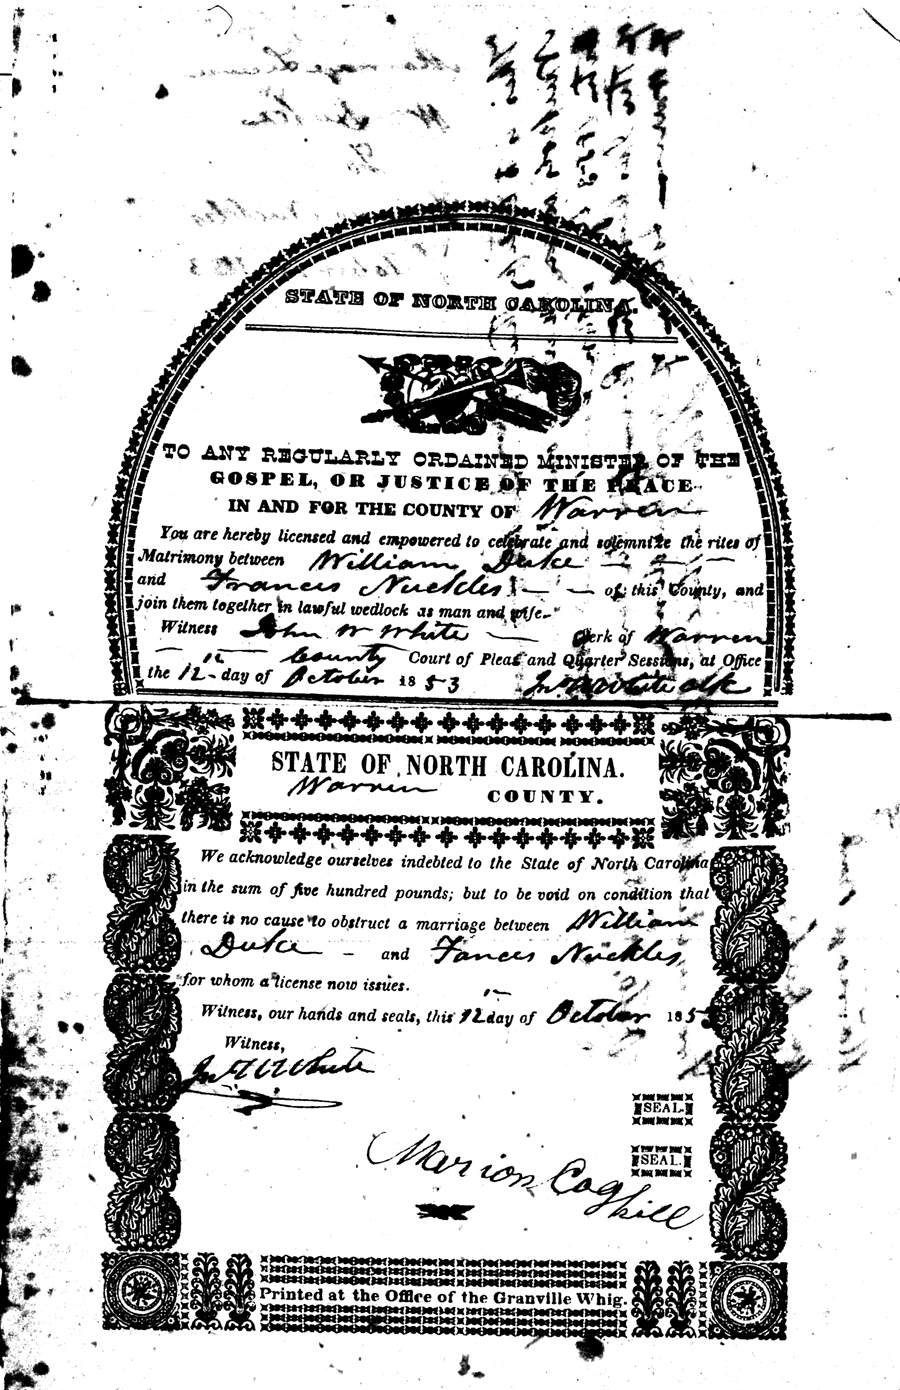 STATE OF NORTH CAROLINA.
TO ANY REGULARLY ORDAINED MINISTER OF THE
GOSPEL, OR JUSTICE OF THE PEACE
IN AND FOR THE COUNTY OF Warren
You are hereby licensed and empowered to celebrate and solemnize the rites of
Matrimony between William Duke — — —
and Frances Nuckles — — of this County, and
join them together in lawful wedlock as man and wife.
Witness John W White — Clerk of Warren
— — County Court of Pleas and Quarter Sessions, at Office
the 12 day of October 1853 Jno W White clk
STATE OF NORTH CAROLINA.
Warren COUNTY.
We acknowledge ourselves indebted to the State of North Carolina
in the sum of five hundred pounds; but to be void on condition that
there is no cause to obstruct a marriage between William
Duke — and Fances Nuckles
for whom a license now issues.
Witness, our hands and seals, this 12 day of October 1853
Witness,
Jno W White
SEAL.
SEAL.
Marion Coghill
Printed at the Office of the Granville Whig.